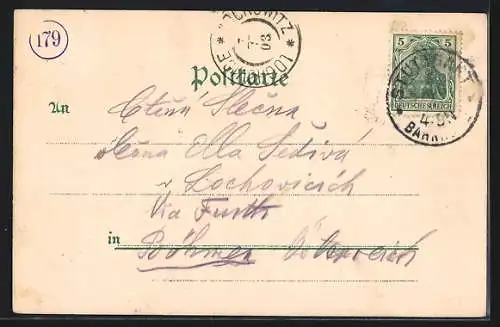 179
LOCHOWITZ * LOCHOVICE *
7 7 03
5 5
DEUTSCHES REICH
STUTTGART
4-5N
BAHNH.
Postkarte
An Ctěná Slečna
slečna Ella Šedivá
v Lochovicích
Via Furth
in Böhmen Österreich